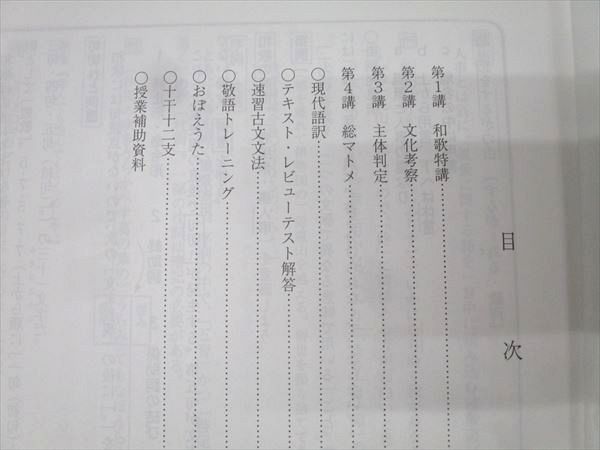 目次
第1講　和歌特講
第2講　文化考察
第3講　主体判定
第4講　総マトメ
○現代語訳
○テキスト・レビューテスト解答
○速習古文文法
○敬語トレーニング
○おぼえうた
○十干十二支
○授業補助資料